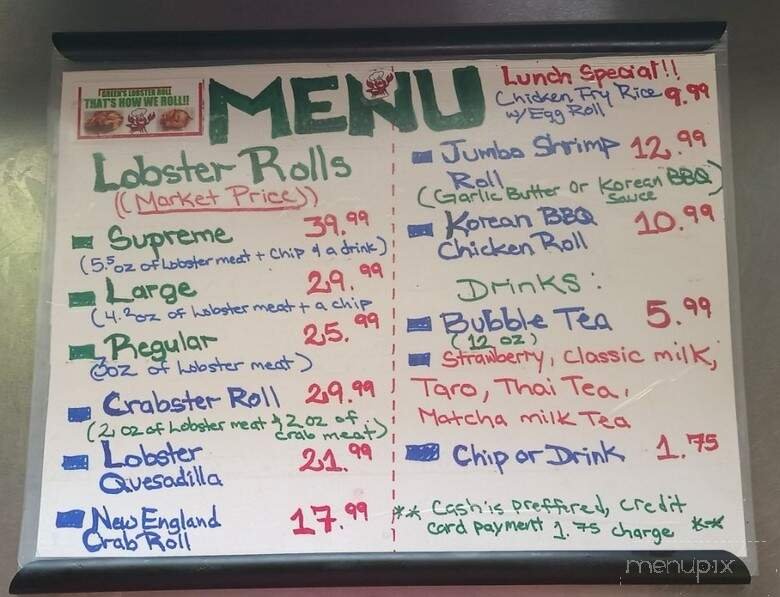 GREEN'S LOBSTER ROLL
THAT'S HOW WE ROLL!!
MENU
Lobster Rolls
((Market Price))
Supreme 39.99
(5.5oz of Lobster meat + Chip & a drink)
Large 29.99
(4.2oz of Lobster meat + a chip
Regular 25.99
(3oz of Lobster meat)
Crabster Roll 29.99
(2 oz of Lobster meat & 2 oz of
crab meat)
Lobster 21.99
Quesadilla
New England 17.99
Crab Roll
Lunch Special!!
Chicken Fry Rice 9.99
w/ Egg Roll
Jumbo Shrimp 12.99
Roll
(Garlic Butter or Korean BBQ)
Sauce
Korean BBQ 10.99
Chicken Roll
Drinks:
Bubble Tea 5.99
(12 oz)
Strawberry, Classic milk,
Taro, Thai Tea,
Matcha milk Tea
Chip or Drink 1.75
** Cash is preffered, credit
card payment 1.75 charge **
menupix